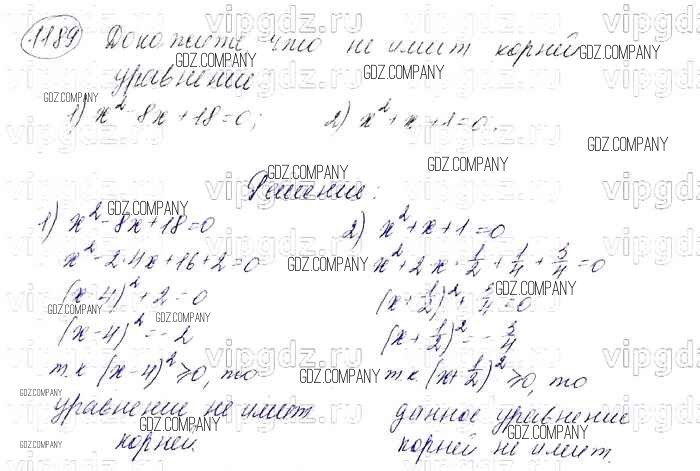 1189 Докажите что не имеет корней
уравнение
1) x² - 8x + 18 = 0; 2) x² + x + 1 = 0.
Решение:
1) x² - 8x + 18 = 0
x² - 2·4x + 16 + 2 = 0
(x - 4)² + 2 = 0
(x - 4)² = -2
т.к (x - 4)² ⩾ 0, то
уравнение не имеет
корней.
2) x² + x + 1 = 0
x² + 2·x·1/2 + 1/4 + 3/4 = 0
(x + 1/2)² + 3/4 = 0
(x + 1/2)² = -3/4
т.к. (x + 1/2)² ⩾ 0, то
данное уравнение
корней не имеет.
vipgdz.ru
GDZ.COMPANY